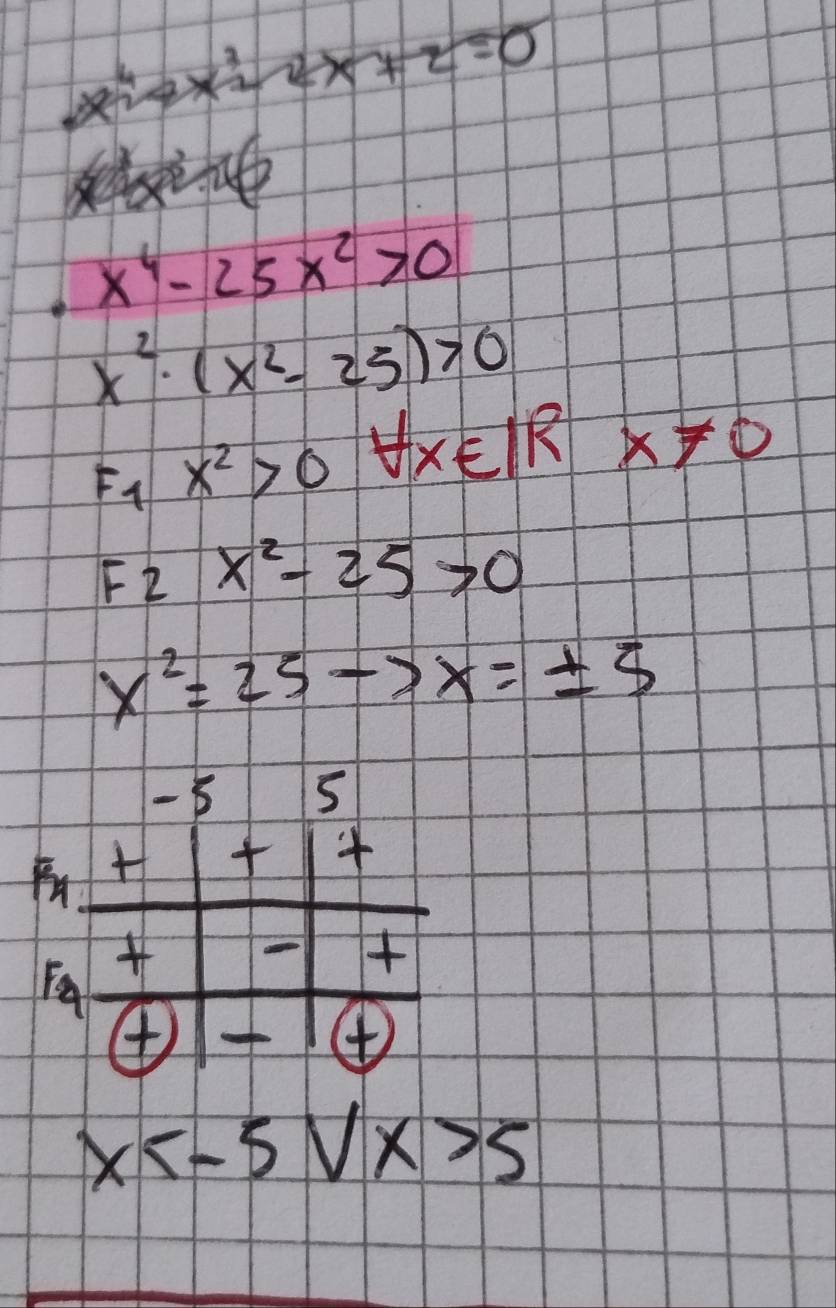 x⁴-25x²>0
x²·(x²-25)>0
F1 x²>0 ∀x∈R x≠0
F2 x²-25>0
x²=25->x=±5
-5 5
F1 + + +
F2 + - +
+ - +
x<-5 V x>5